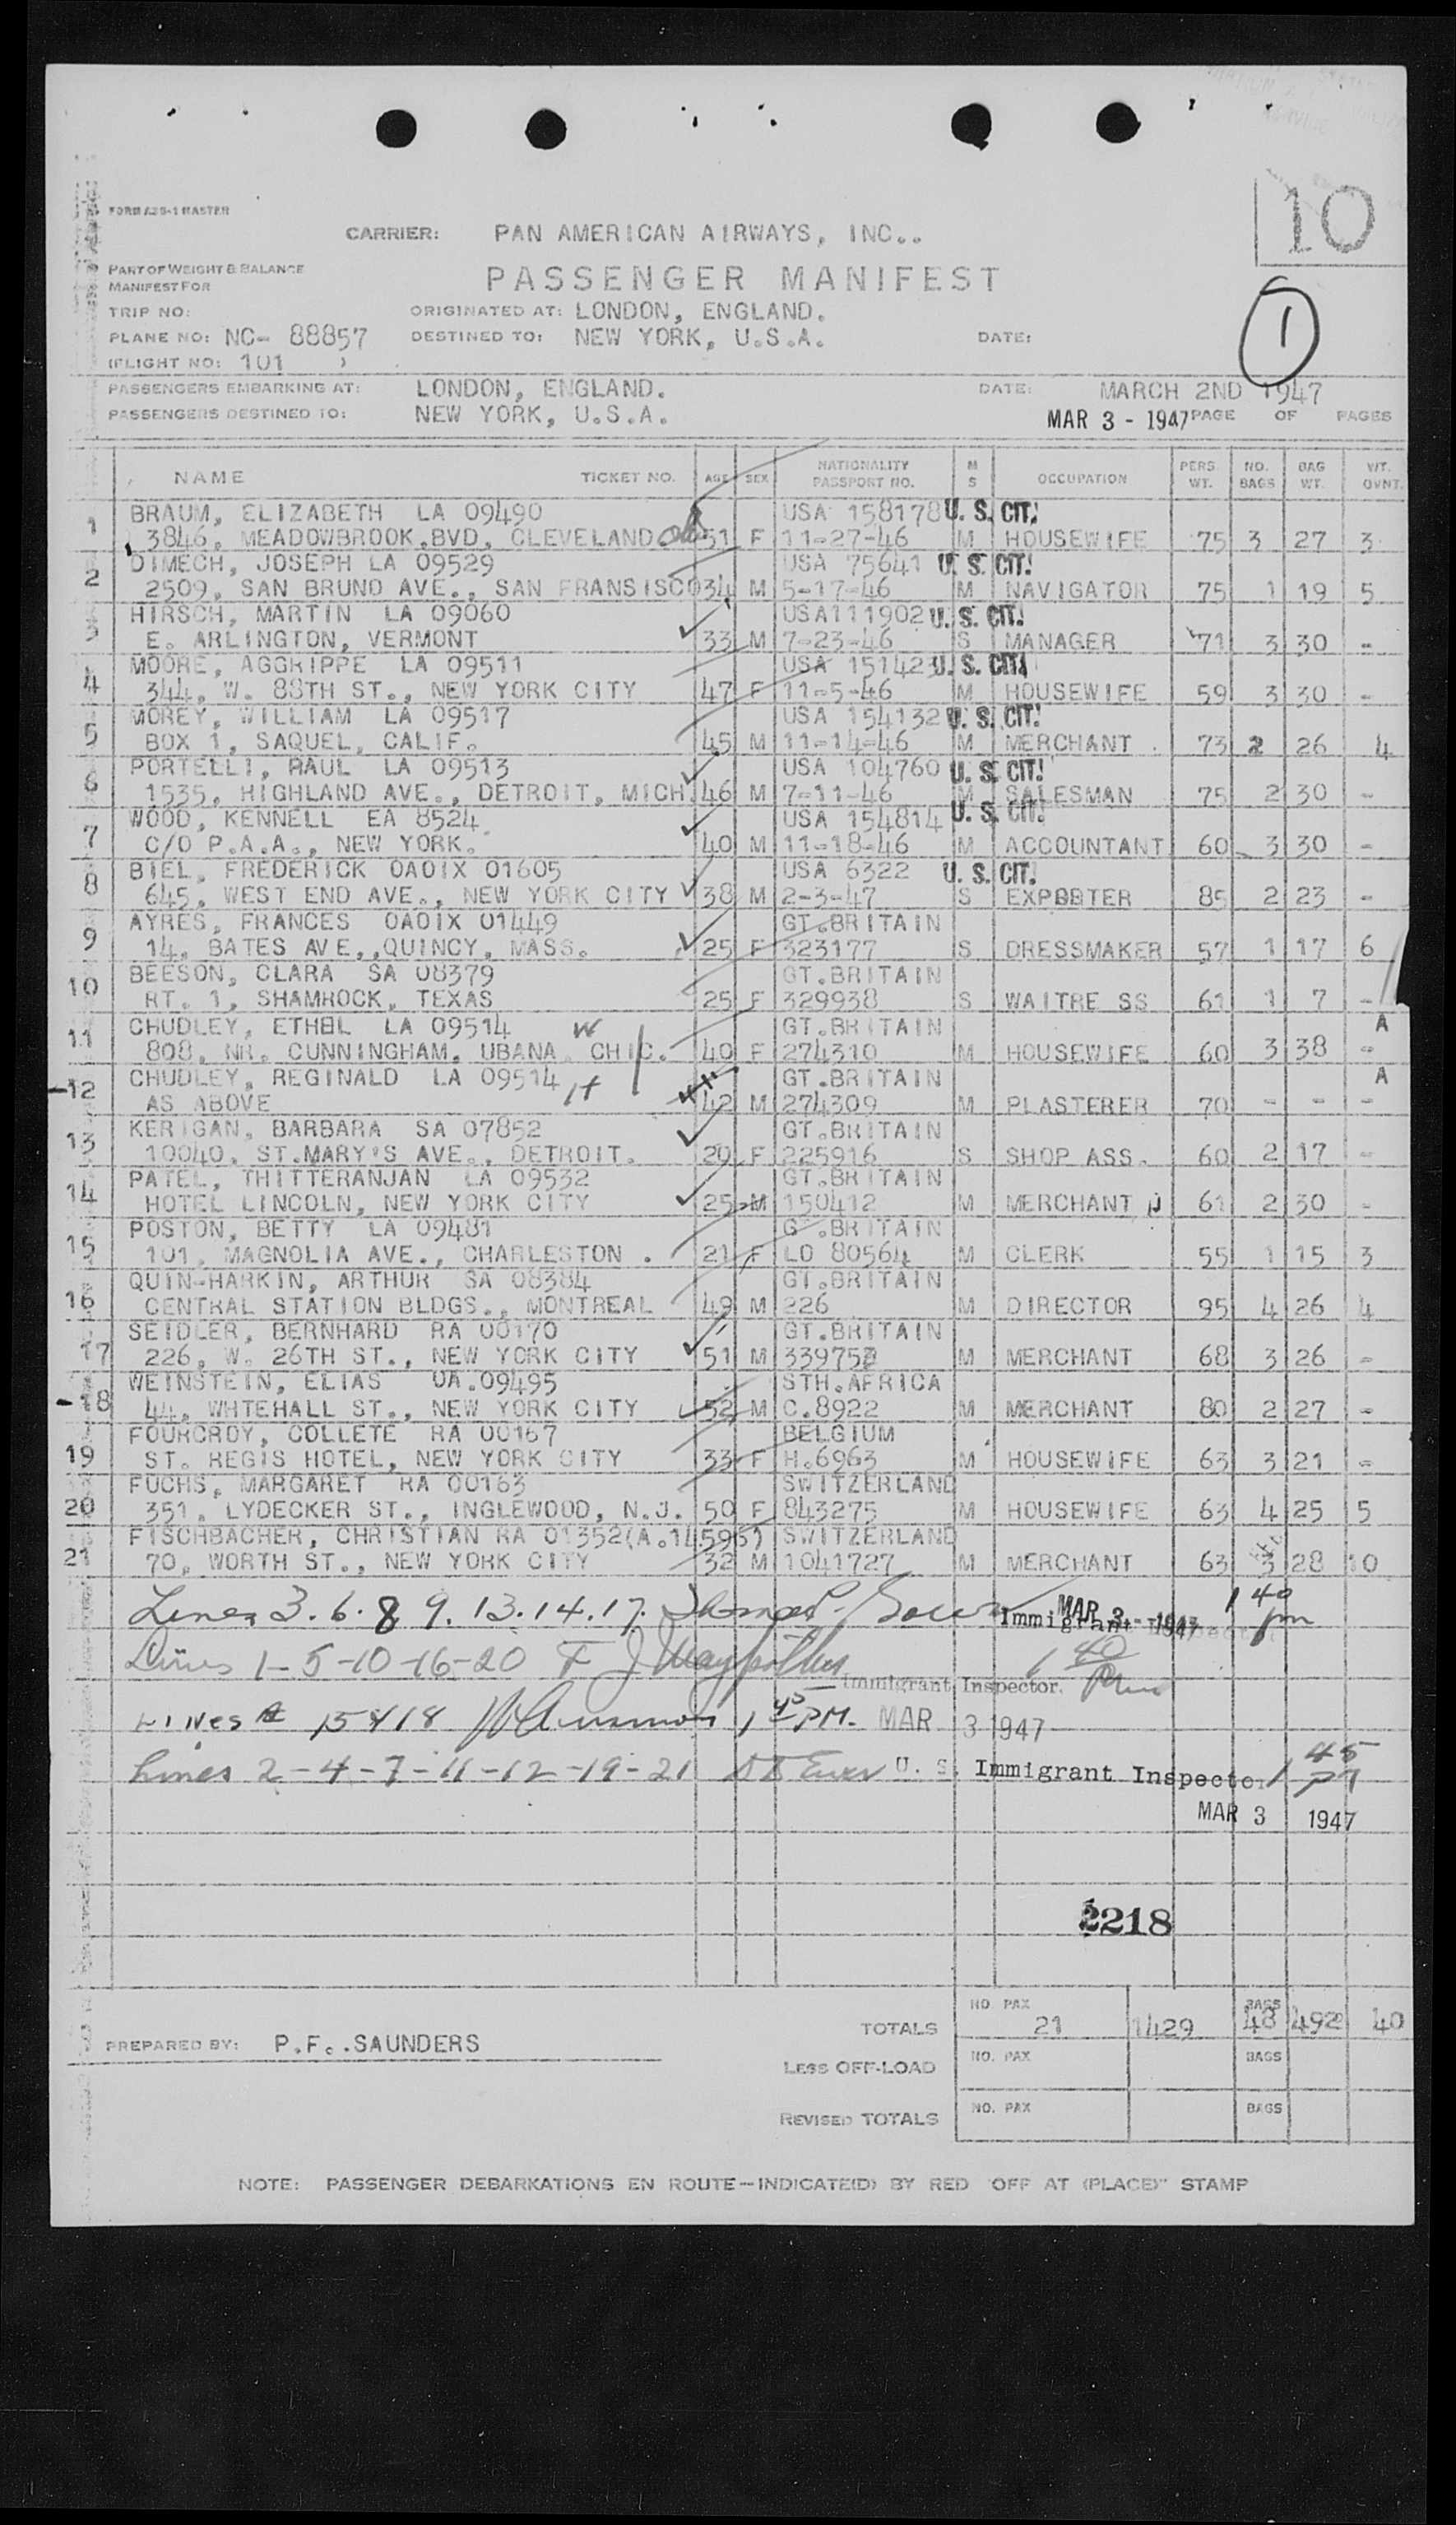 10
FORM A28-1 MASTER
CARRIER: PAN AMERICAN AIRWAYS, INC..
PART OF WEIGHT & BALANCE
MANIFEST FOR
PASSENGER MANIFEST
1
TRIP NO: ORIGINATED AT: LONDON, ENGLAND.
PLANE NO: NC- 88857 DESTINED TO: NEW YORK, U.S.A. DATE:
(FLIGHT NO: 101 )
PASSENGERS EMBARKING AT: LONDON, ENGLAND. DATE: MARCH 2ND 1947
PASSENGERS DESTINED TO: NEW YORK, U.S.A. MAR 3 - 1947 PAGE OF PAGES
NAME TICKET NO. AGE SEX NATIONALITY PASSPORT NO. M S OCCUPATION PERS. WT. NO. BAGS BAG WT. WT. OVNT.
BRAUM, ELIZABETH LA 09490 USA 158178 U. S. CIT.
1 3846, MEADOWBROOK.BVD, CLEVELAND 51 F 11-27-46 M HOUSEWIFE 75 3 27 3
DIMECH, JOSEPH LA 09529 USA 75641 U. S. CIT.
2 2509, SAN BRUNO AVE., SAN FRANSISCO 34 M 5-17-46 M NAVIGATOR 75 1 19 5
HIRSCH, MARTIN LA 09060 USA111902 U. S. CIT.
3 E. ARLINGTON, VERMONT 33 M 7-23-46 S MANAGER 71 3 30 -
MOORE, AGGRIPPE LA 09511 USA 151423 U. S. CIT.
4 344, W. 88TH ST., NEW YORK CITY 47 F 11-5-46 M HOUSEWIFE 59 3 30 -
MOREY, WILLIAM LA 09517 USA 154132 U. S. CIT.
5 BOX 1, SAQUEL, CALIF. 45 M 11-14-46 M MERCHANT 73 2 26 4
PORTELLI, PAUL LA 09513 USA 104760 U. S. CIT.
6 1535, HIGHLAND AVE., DETROIT, MICH. 46 M 7-11-46 M SALESMAN 75 2 30 -
WOOD, KENNELL EA 8524 USA 154814 U. S. CIT.
7 C/O P.A.A., NEW YORK. 40 M 11-18-46 M ACCOUNTANT 60 3 30 -
BIEL, FREDERICK OAOIX 01605 USA 6322 U. S. CIT.
8 645, WEST END AVE., NEW YORK CITY 38 M 2-3-47 S EXPORTER 85 2 23 -
AYRES, FRANCES OAOIX 01449 GT.BRITAIN
9 14, BATES AVE,,QUINCY, MASS. 25 F 323177 S DRESSMAKER 57 1 17 6
BEESON, CLARA SA 08379 GT.BRITAIN
10 RT. 1, SHAMROCK, TEXAS 25 F 329938 S WAITRE SS 61 1 7 -
CHUDLEY, ETHEL LA 09514 W GT.BRITAIN A
11 808, NR. CUNNINGHAM, UBANA, CHIC. 40 F 274310 M HOUSEWIFE 60 3 38 -
CHUDLEY, REGINALD LA 09514 H GT.BRITAIN A
-12 AS ABOVE 42 M 274309 M PLASTERER 70 - - -
KERIGAN, BARBARA SA 07852 GT.BRITAIN
13 10040, ST.MARY'S AVE., DETROIT. 29 F 225916 S SHOP ASS. 60 2 17 -
PATEL, THITTERANJAN LA 09532 GT.BRITAIN
14 HOTEL LINCOLN, NEW YORK CITY 25 M 150412 M MERCHANT 61 2 30 -
POSTON, BETTY LA 09481 GT.BRITAIN
15 101, MAGNOLIA AVE., CHARLESTON . 21 F LO 80564 M CLERK 55 1 15 3
QUIN-HARKIN, ARTHUR SA 08384 GT.BRITAIN
16 CENTRAL STATION BLDGS., MONTREAL 49 M 226 M DIRECTOR 95 4 26 4
SEIDLER, BERNHARD RA 00170 GT.BRITAIN
17 226, W. 26TH ST., NEW YORK CITY 51 M 339752 M MERCHANT 68 3 26 -
WEINSTEIN, ELIAS UA.09495 STH.AFRICA
-18 44, WHTEHALL ST., NEW YORK CITY 52 M C.8922 M MERCHANT 80 2 27 -
FOURCROY, COLLETE RA 00167 BELGIUM
19 ST. REGIS HOTEL, NEW YORK CITY 33 F H.6963 M HOUSEWIFE 63 3 21 -
FUCHS, MARGARET RA 00163 SWITZERLAND
20 351, LYDECKER ST., INGLEWOOD, N.J. 50 F 843275 M HOUSEWIFE 63 4 25 5
FISCHBACHER, CHRISTIAN RA 01352(A.14595) SWITZERLAND
21 70, WORTH ST., NEW YORK CITY 32 M 1041727 M MERCHANT 63 3 28 10
Lines 3.6.8 9.13.14.17. Immigrant Inspector MAR 3 - 1947 1 40 pm
Lines 1-5-10-16-20 Immigrant Inspector. 1 40 Pm
Lines 15 & 18 1 45 PM. MAR 3 1947
Lines 2-4-7-11-12-19-21 U. S. Immigrant Inspector 1 45
MAR 3 1947
2218
NO. PAX BAGS
TOTALS 21 1429 48 492 40
PREPARED BY: P.F..SAUNDERS
LESS OFF-LOAD NO. PAX BAGS
REVISED TOTALS NO. PAX BAGS
NOTE: PASSENGER DEBARKATIONS EN ROUTE—INDICATE(D) BY RED "OFF AT (PLACE)" STAMP